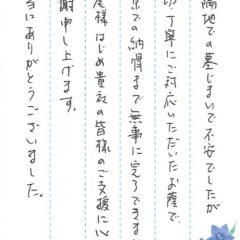 隔地での墓じまいで不安でしたが
切丁寧にご対応いただいたお蔭で、
京での納骨まで無事に完了できま
尾様はじめ貴社の皆様のご支援に心
謝申し上げます。
当にありがとうございました。